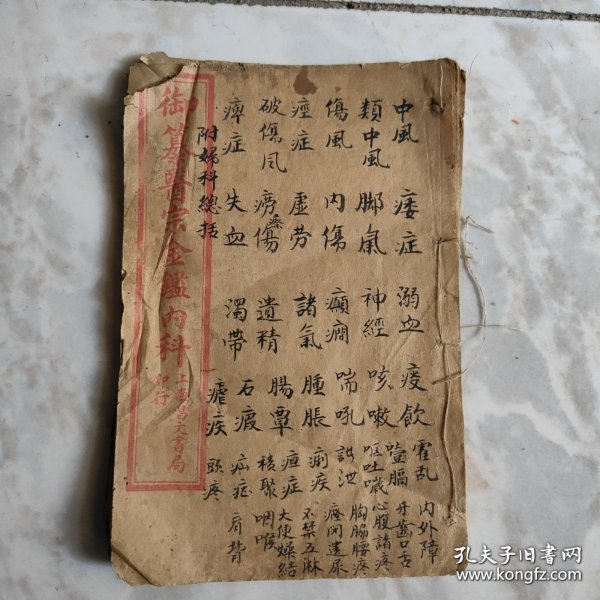 中風 痿症 溺血 痰飲 霍乱 内外障
類中風 脚氣 神經 咳嗽 噎膈 牙齒口舌
傷風 内傷 癲癇 喘吼 嘔吐噦 心腹諸疼
痙症 虛勞 諸氣 腫脹 泄 胸脇腰疼
破傷風 癆傷 遺精 腸覃 痢疾 癃闭遺尿
痺症 失血 濁帶 石瘕 疸症 不禁五淋
瘧疾 積聚 大便燥結
頭疼 疝症 咽喉
肩背
附婦科總括
御纂醫宗金鑑内科
上海昌文書局
印行
孔夫子旧书网
www.kongfz.com